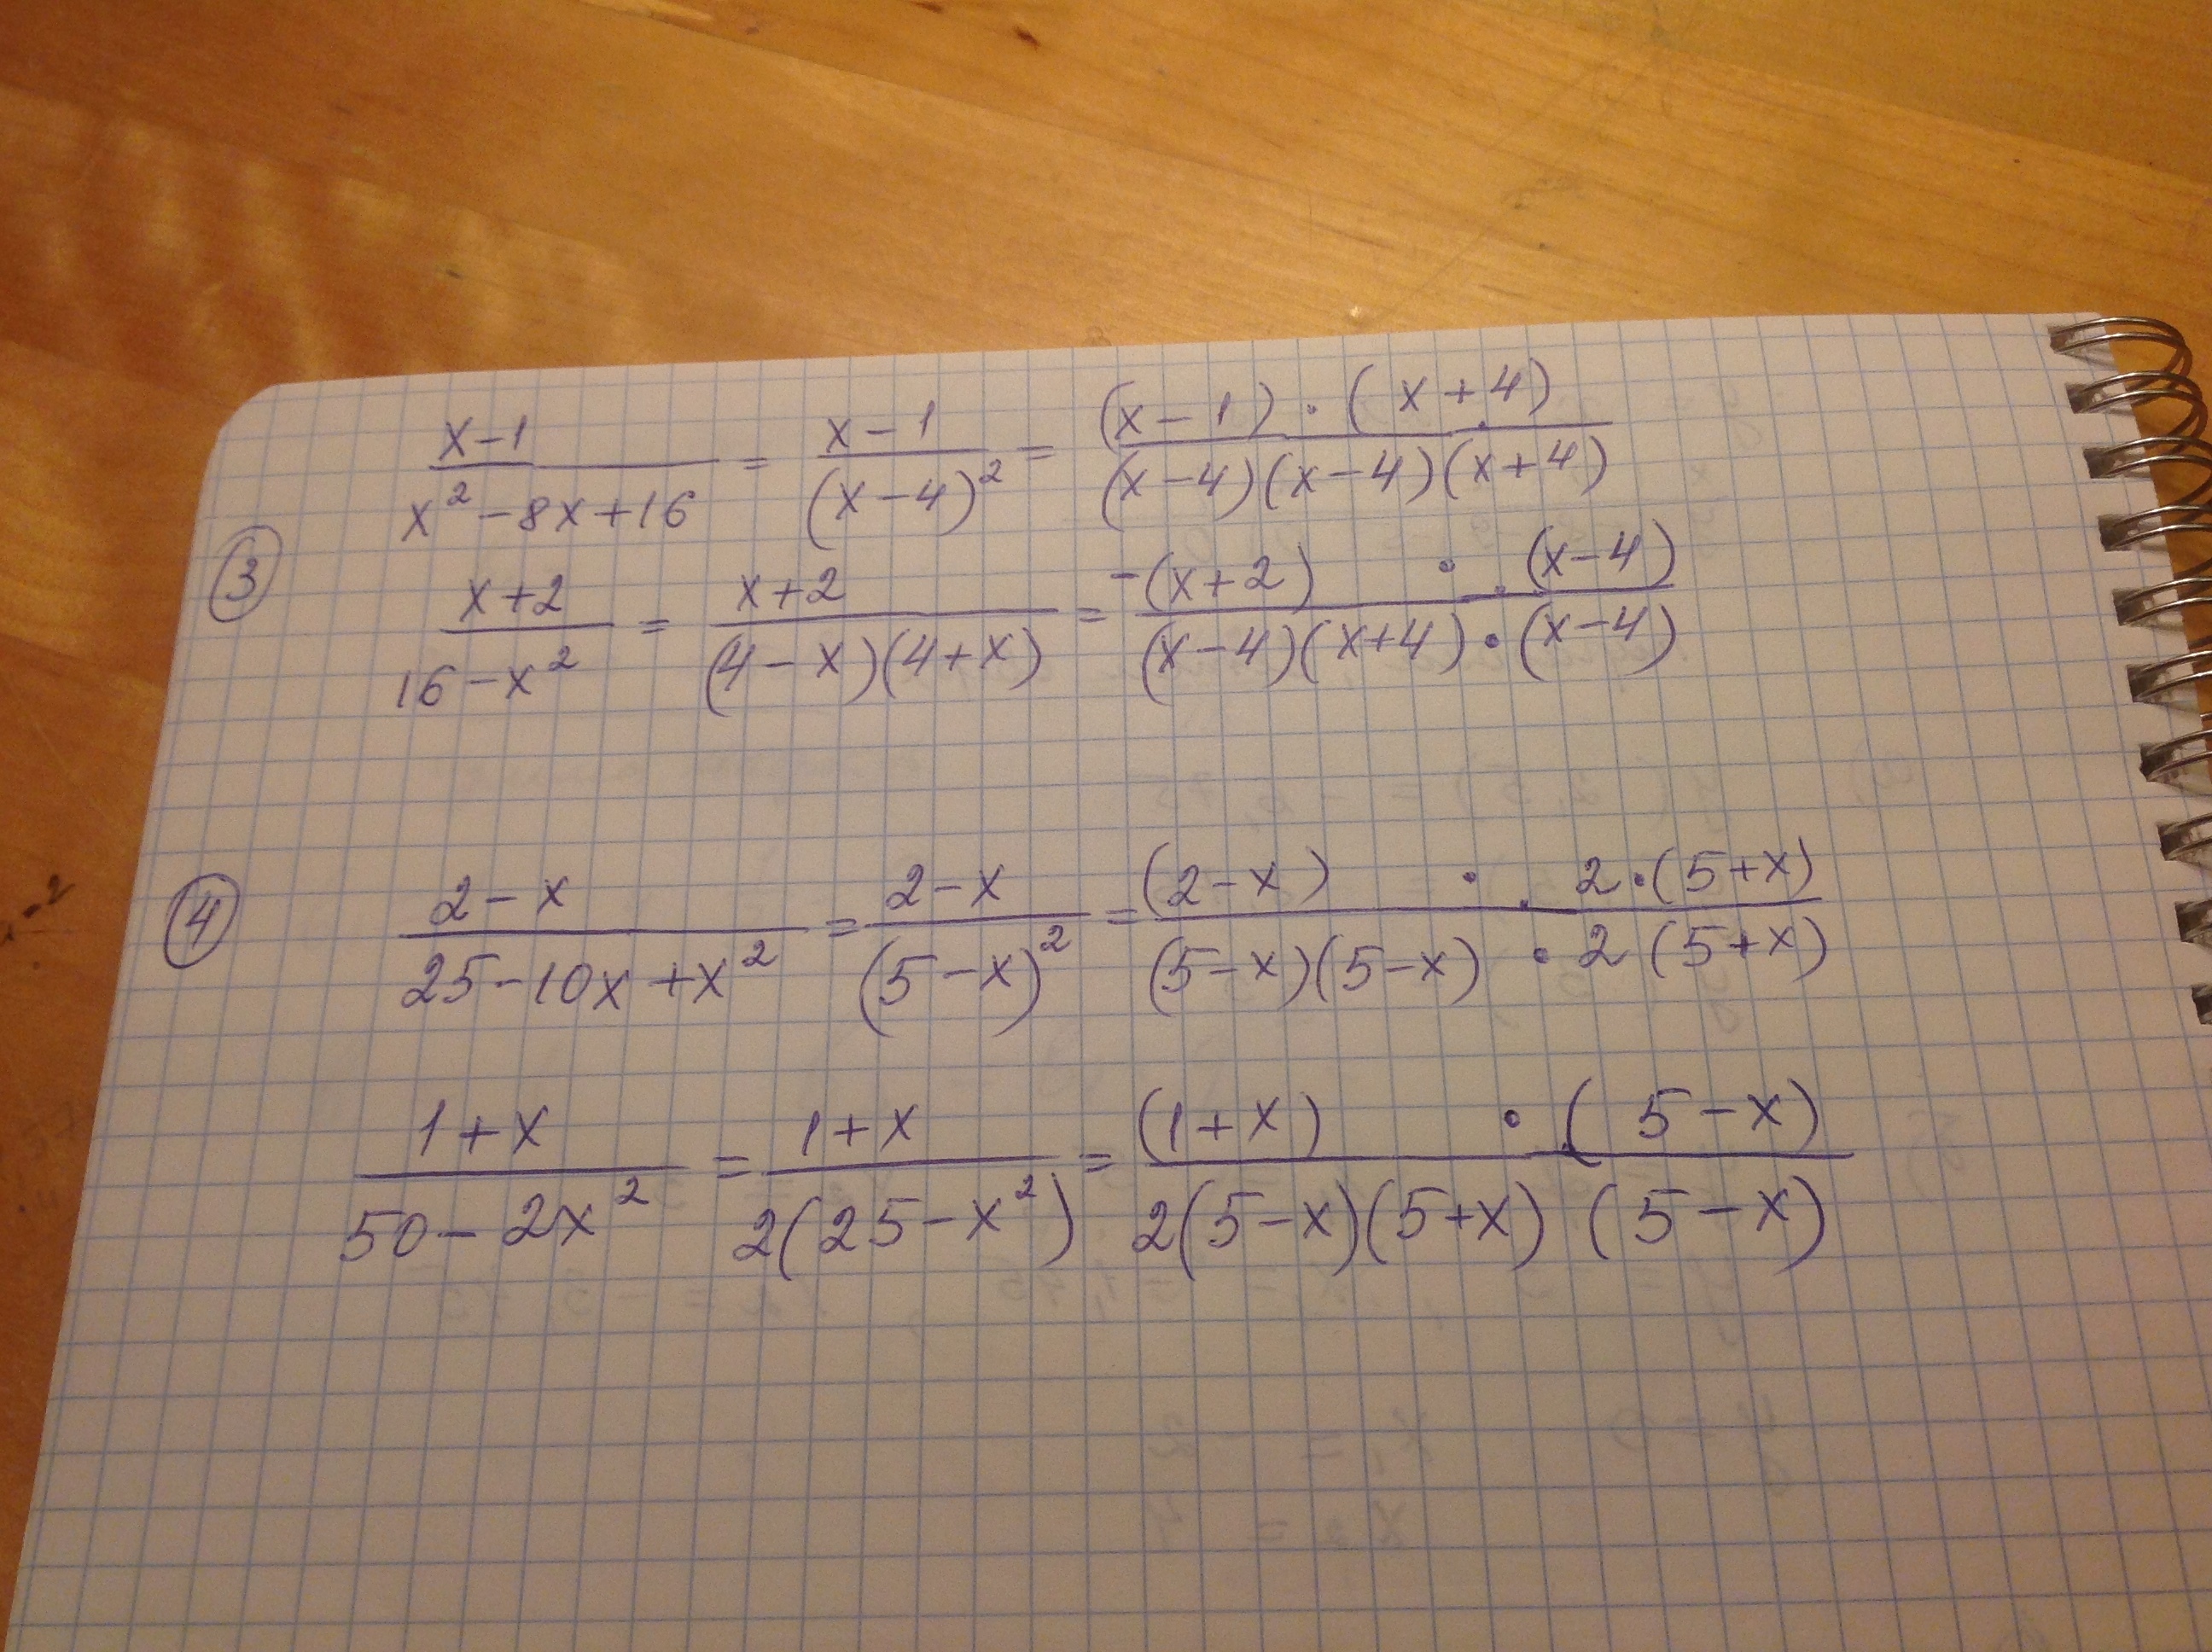 (x-1)/(x²-8x+16) = (x-1)/(x-4)² = ((x-1)·(x+4))/((x-4)(x-4)(x+4))
③
(x+2)/(16-x²) = (x+2)/((4-x)(4+x)) = (-(x+2)·(x-4))/((x-4)(x+4)·(x-4))
④ (2-x)/(25-10x+x²) = (2-x)/(5-x)² = ((2-x)·2·(5+x))/((5-x)(5-x)·2(5+x))
(1+x)/(50-2x²) = (1+x)/(2(25-x²)) = ((1+x)·(5-x))/(2(5-x)(5+x)(5-x))